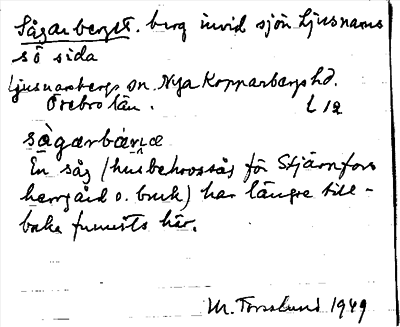 Sågarberget. berg invid sjön Ljusnarns
sö sida
Ljusnarsbergs sn. Nya Kopparbergs hd.
Örebro län. L 12
sågarbærjæ
En såg (husbehovssåg för Stjärnfors
herrgård o. bruk) har längre till-
baka funnits här.
M. Forslund 1949